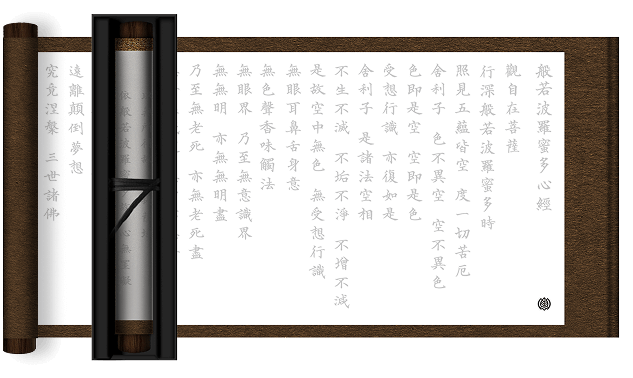 般若波羅蜜多心經
觀自在菩薩
行深般若波羅蜜多時
照見五蘊皆空 度一切苦厄
舍利子 色不異空 空不異色
色即是空 空即是色
受想行識 亦復如是
舍利子 是諸法空相
不生不滅 不垢不淨 不增不減
是故空中無色 無受想行識
無眼耳鼻舌身意
無色聲香味觸法
無眼界 乃至無意識界
無無明 亦無無明盡
乃至無老死 亦無老死盡
依般若波羅 心無罣礙
遠離顛倒夢想
究竟涅槃 三世諸佛